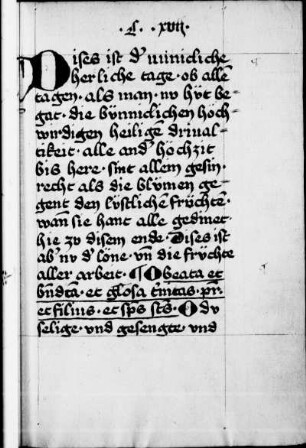 · C · xvii ·
Dises ist d' minicliche
herliche tage · ob allē
tagen · als man · nv hvt be-
gat · die bvnniclichen hoch-
wirdigen heilige drival-
tikeit · alle and' hochzit
bis here · sint allem gesin ·
recht als die blvmen ge-
gent den lvstlichē frvchtē ·
wan sie hant alle gedinet
hie zv disem ende · Dises ist
ab' nv d' lone · vn̄ die frvchte
aller arbeit · O beata et
bn̄dcā · et glosa t'nitas · pr̄
et filius · et sp̄s sc̄s · O dv
selige · vnd gesengte vnd